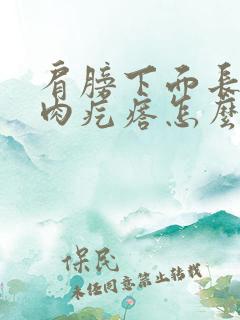 肩膀下而長
肉疙瘩怎麼
保民
未经同意禁止转载